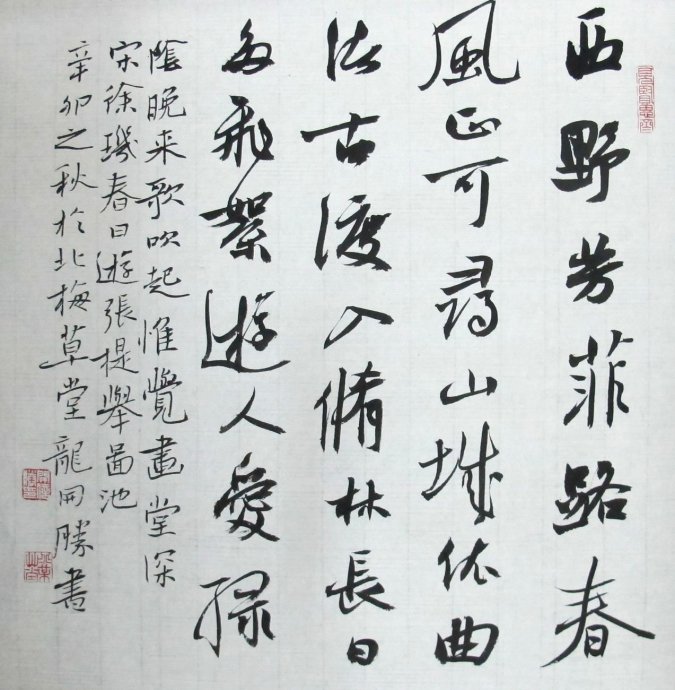 西野芳菲路春
風正可尋山城依曲
渚古渡入脩林長日
多飛絮遊人愛緑
陰晚来歌吹起惟覺畫堂深
宋徐璣春日遊張提舉啚池
辛卯之秋於北梅草堂龍開勝書